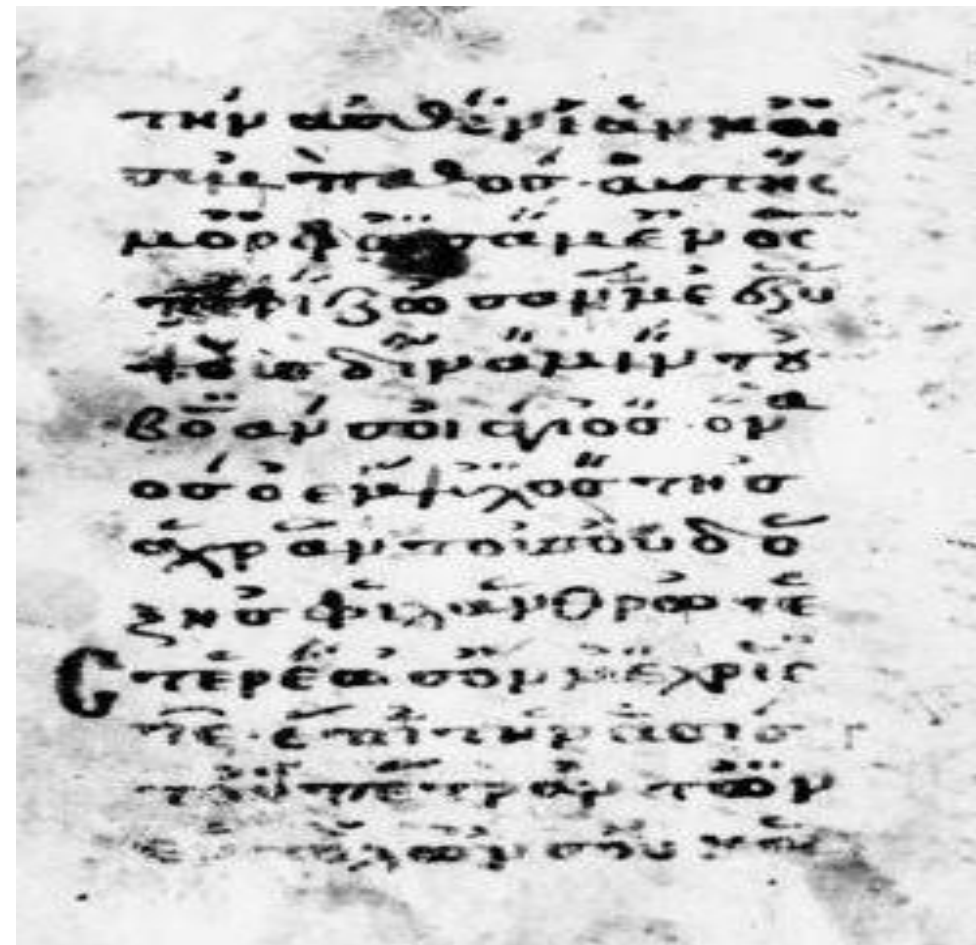 την ασθενιαν και
παθοσ αυτης
μορφωσαμενος
περιζωσον με εξ υ
ψουσ διναμιν του
βοαν σοι αγιος ο να
οσ ο εμψιχοσ τησ
αχραντου σου δο
ξησ φιλανθροπε
Cτερεωσον με χρισ
τε επι την ασισ
τον πετραν των
εντολων σου και